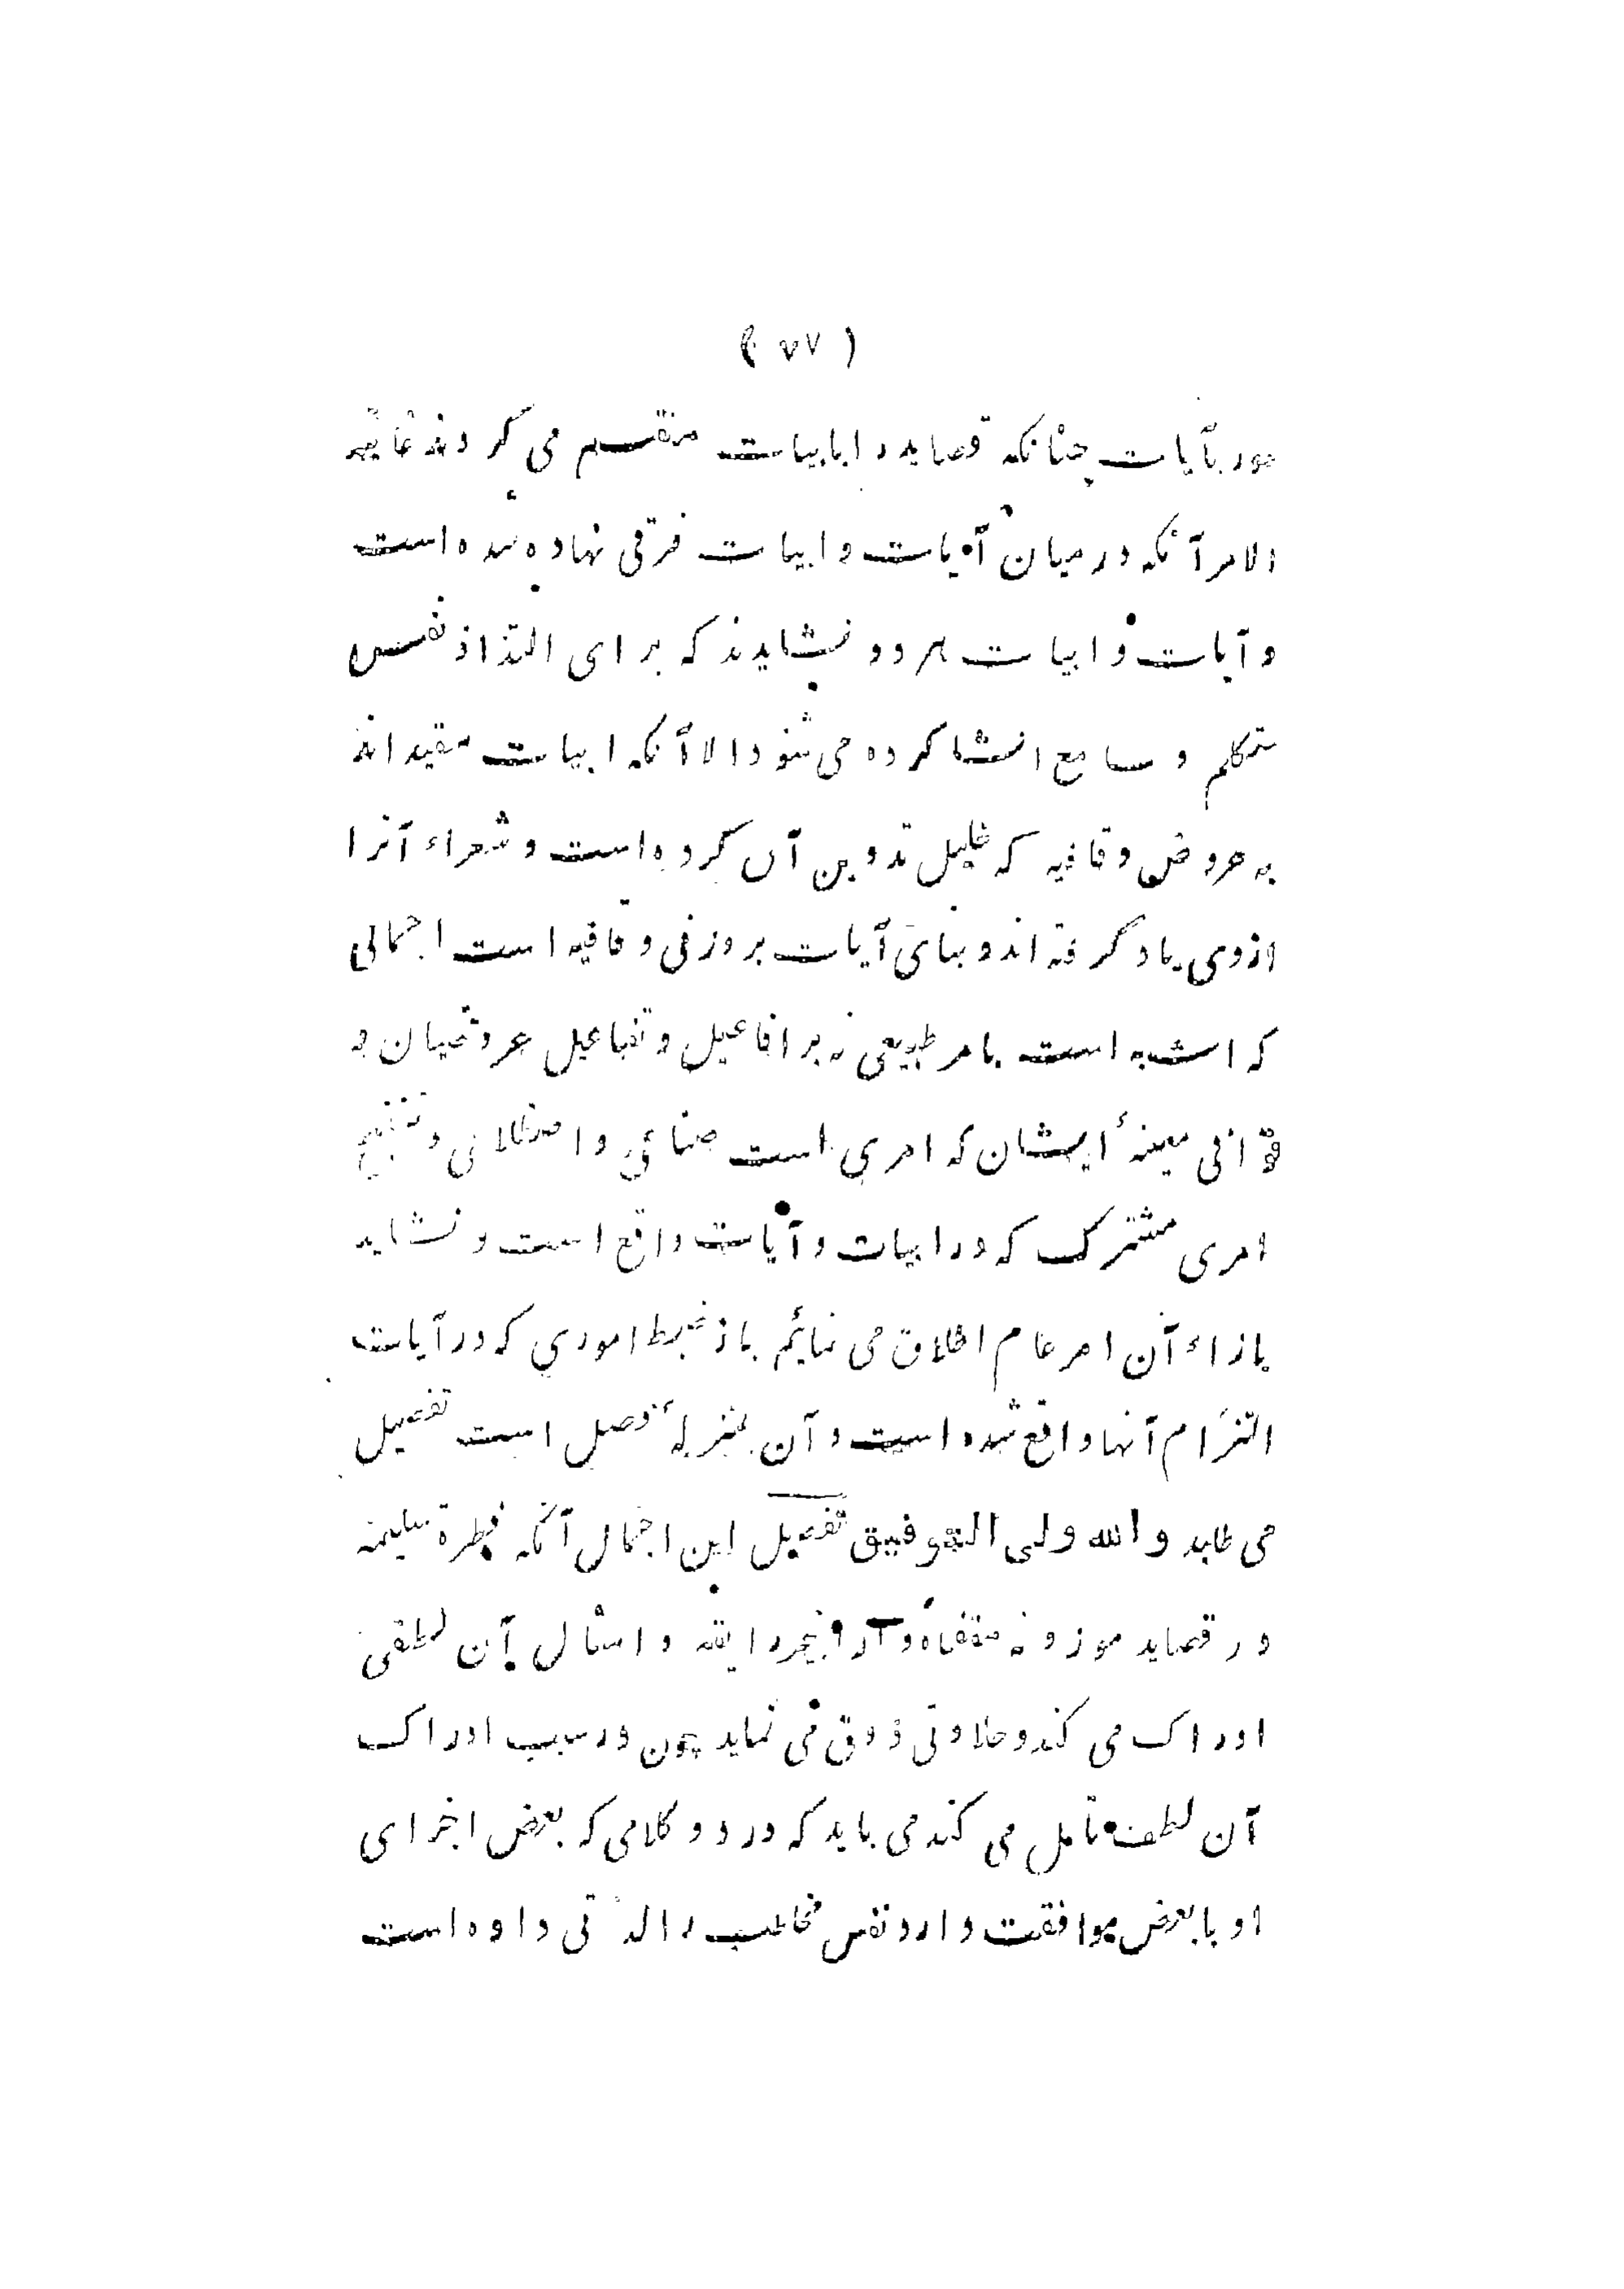 ( ۷۷ )
سور بآیات چنانکه قصاید را بابیات منقسم می کردند غایة
الامر آنکه در میان آیات و ابیات فرقی نهاده شده است
و آیات و ابیات هر دو نشایدند که برای التذاذ نفس
متکلم و سامع انشا کرده می شود الا آنکه ابیات مقید اند
به عروض و قافیه که خلیل تدوین آن کرده است و شعراء آنرا
ازوی یاد گرفته اند و بنای آیات بر وزنی و قافیه است اجمالی
که اشبه است بامر طبیعی نه بر افاعیل و تفاعیل عروضیان و
قوافی معینهٔ ایشان که امری است صناعی و اصطلاحی و تنقیح
امری مشترک که در ابیات و آیات واقع است و نشاید
بازاء آن امر عام اطلاق می نمائیم باز ضبط اموری که در آیات
التزام آنها واقع شده است و آن بمنزلهٔ فصل است تفصیل
می طلبد والله ولی التوفیق تفصیل این اجمال آنکه فطرة سلیمه
در قصاید موزونه مقفاة و اراجیز رایقه و امثال آن لطفی
ادراک می کند و حلاوتی ذوق می نماید چون در سبب ادراک
آن لطف تامل می کند می یابد که در دو کلامی که بعض اجزای
او با بعض موافقت دارد نفس مخاطب را لذتی داده است